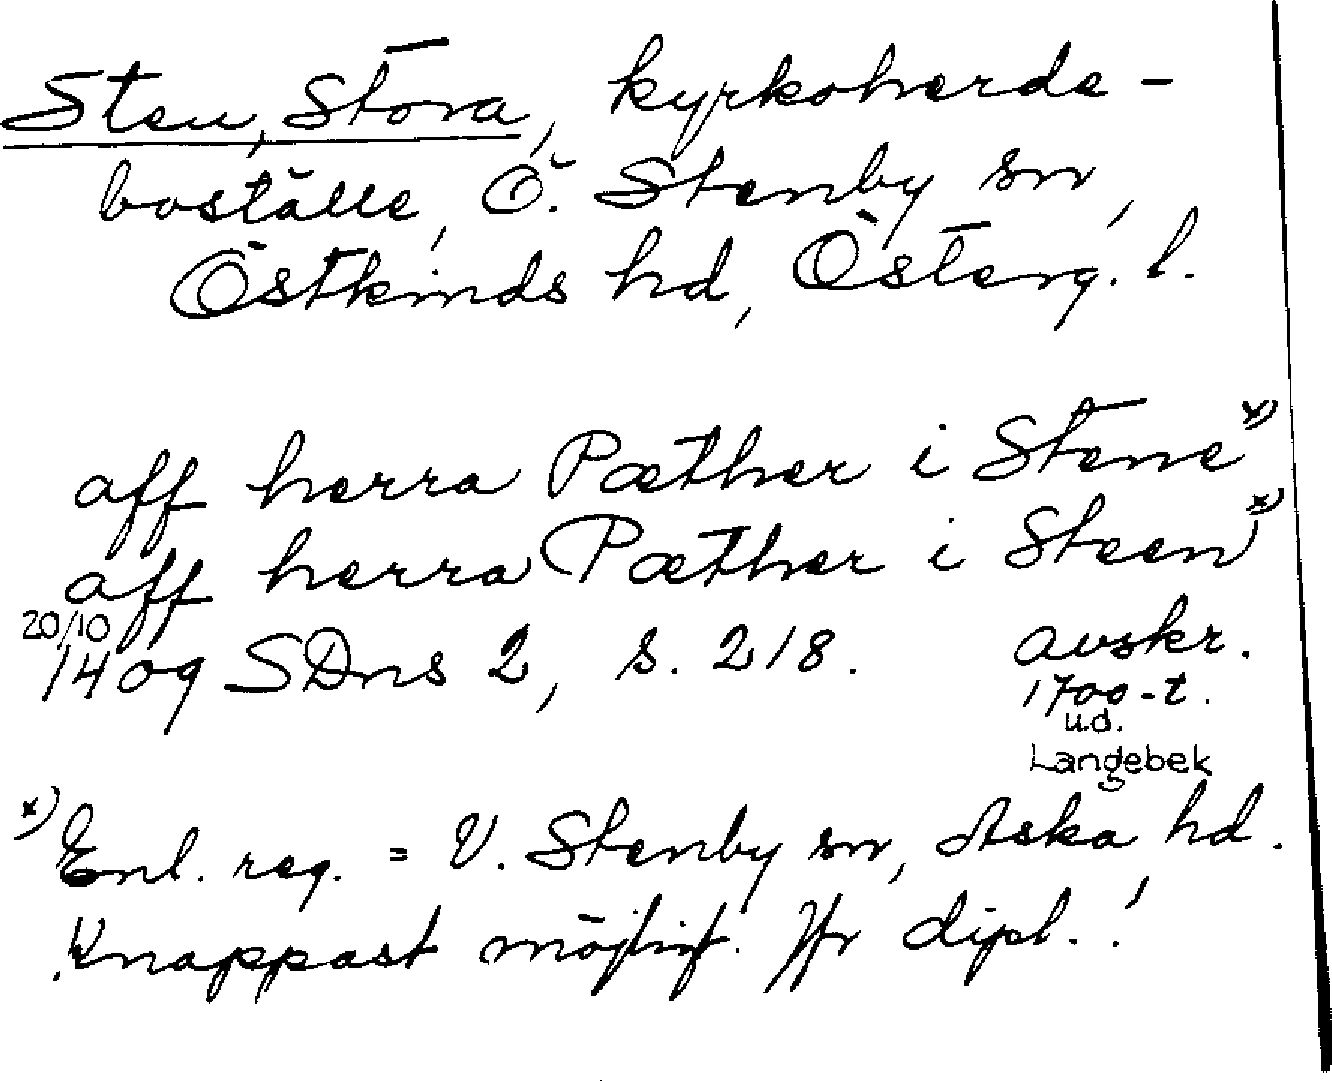 Sten, Stora, kyrkoherde-
boställe, Ö. Stenby sn,
Östkinds hd, Österg. l.
aff herra Pæther i Stene x)
aff herra Pæther i Steen x)
20/10
1409 SDns 2, s. 218. avskr.
1700-t.
u.d.
Langebek
x) Enl. reg. = V. Stenby sn, Aska hd.
Knappast möjligt. Jfr dipl.!